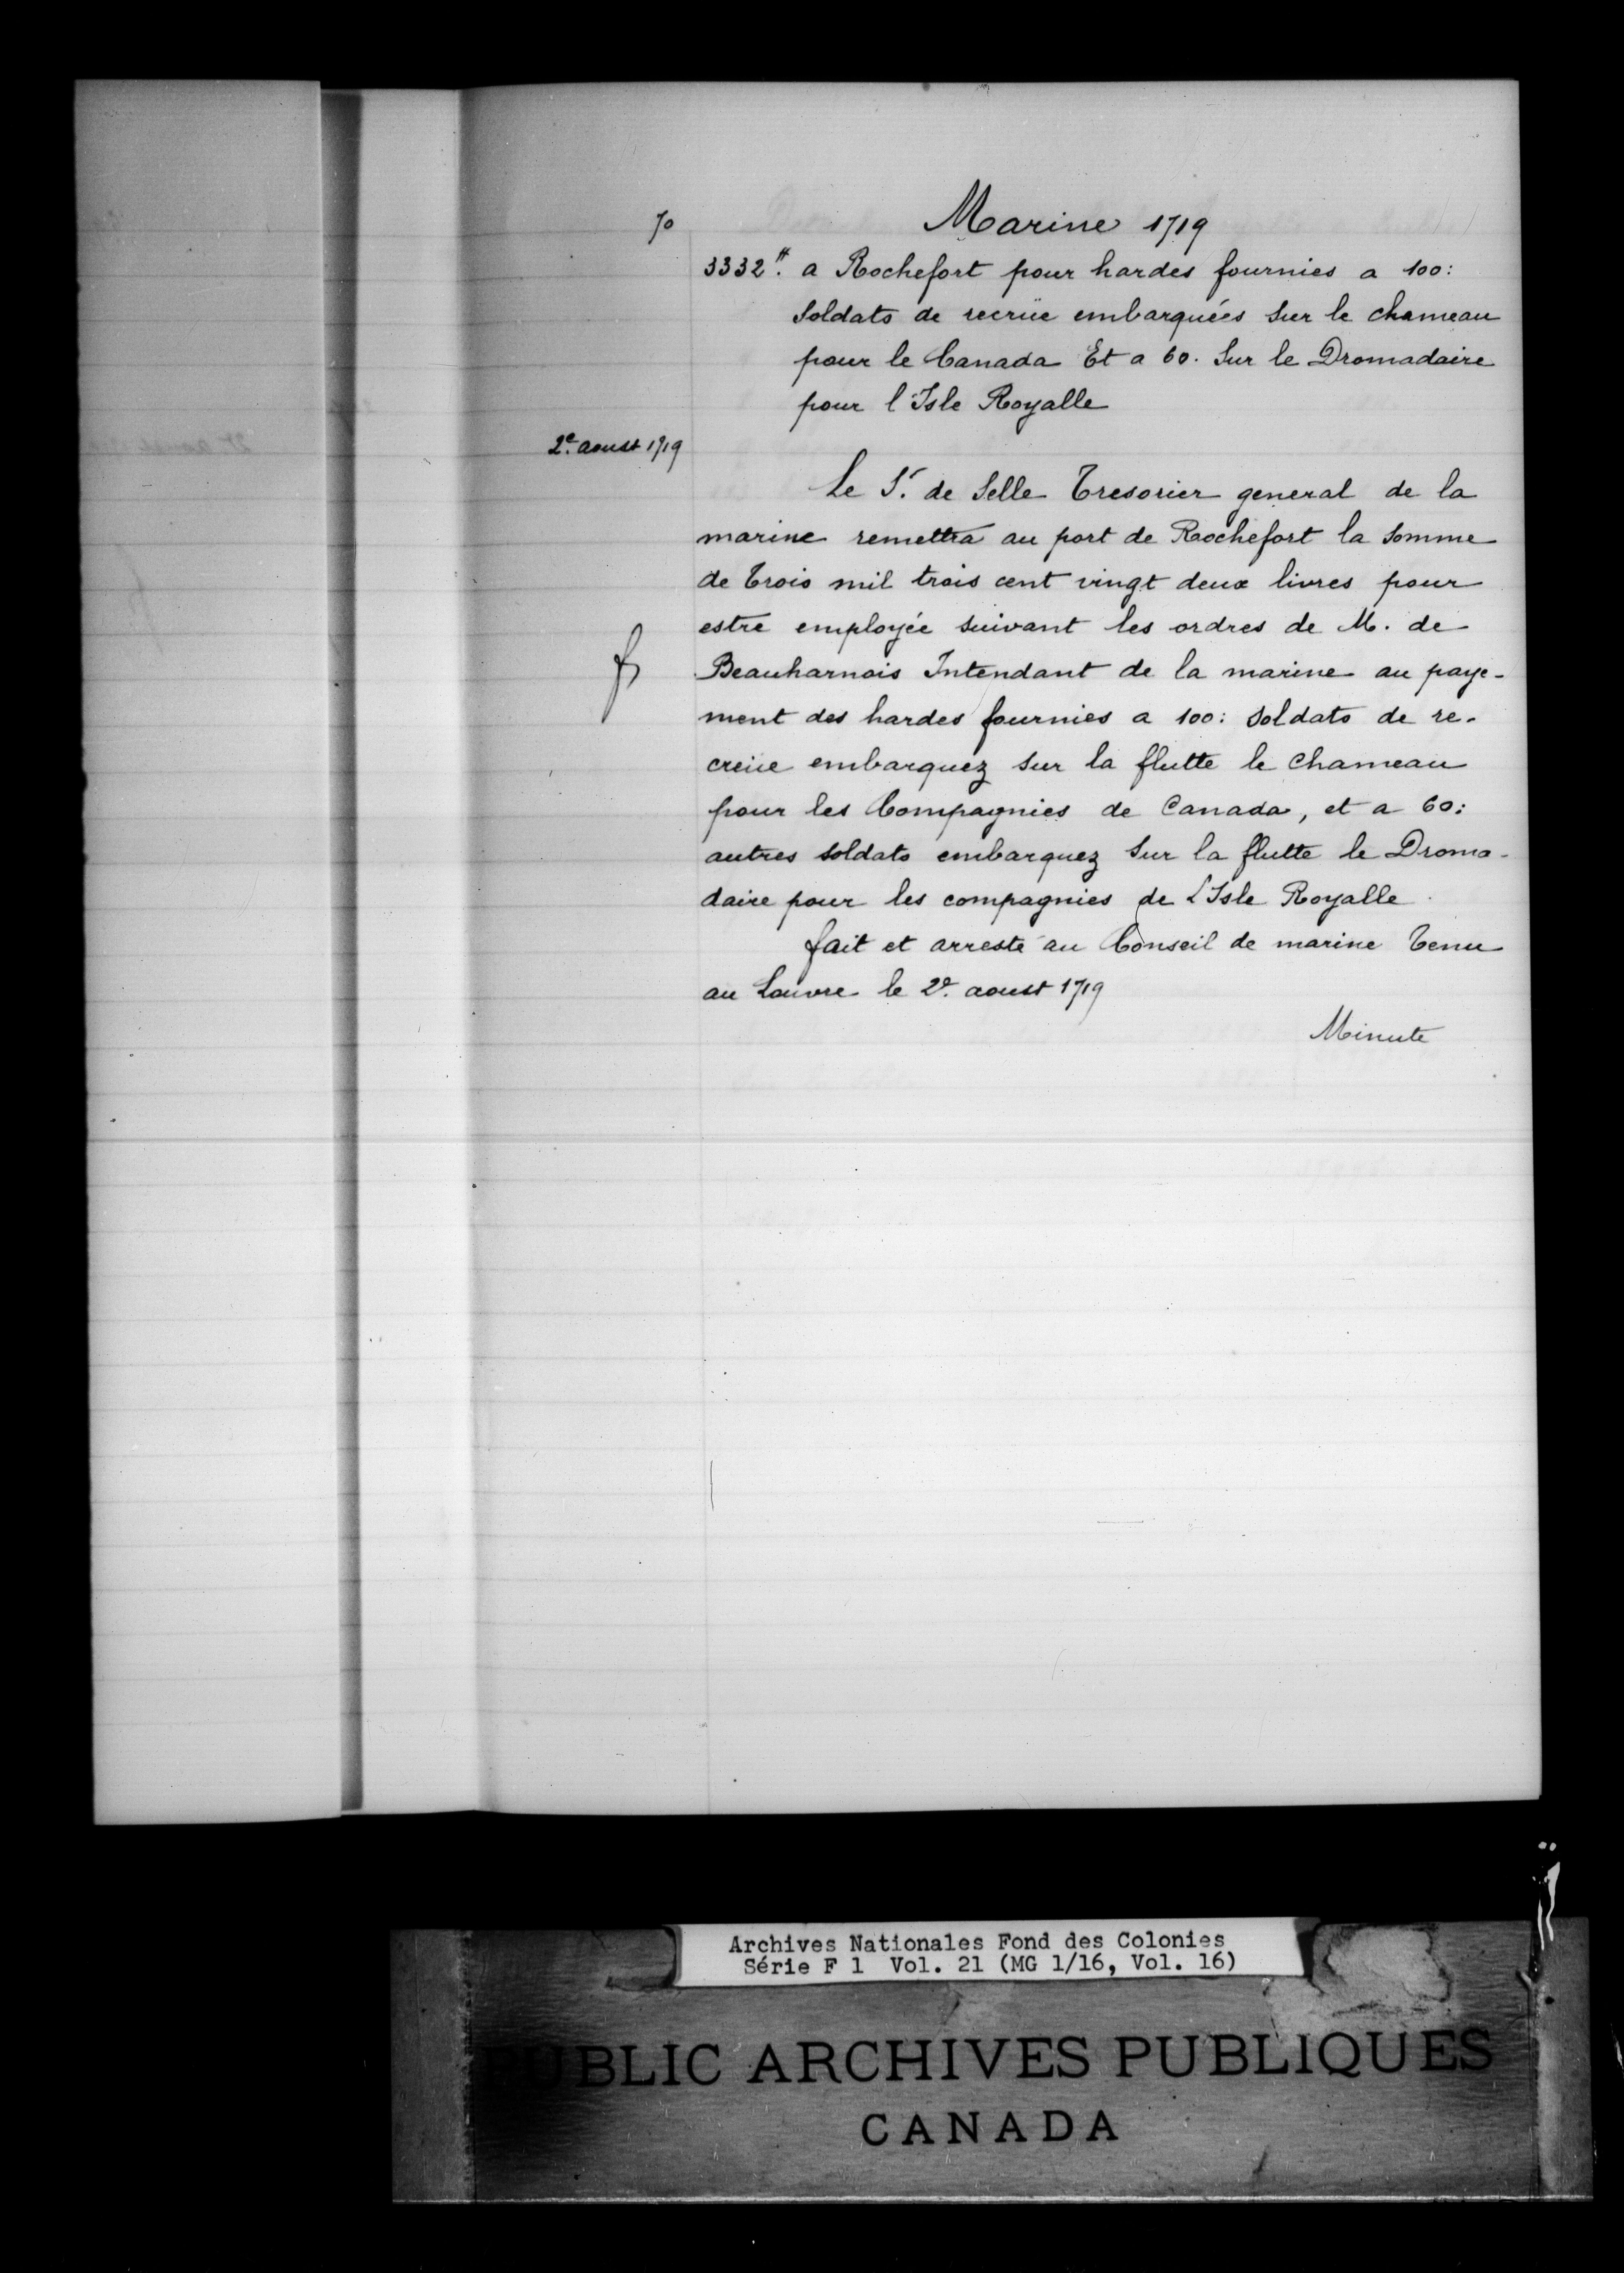 70
Marine 1719
3332#. a Rochefort pour hardes fournies a 100:
Soldats de recrüe embarquées sur le chameau
pour le Canada Et a 60. Sur le Dromadaire
pour l'Isle Royalle
2e. aoust 1719
Le Sr. de Selle Tresorier general de la
marine remettra au port de Rochefort la somme
de Trois mil trois cent vingt deux livres pour
estre employée suivant les ordres de M. de
Beauharnois Intendant de la marine au paye-
ment des hardes fournies a 100: soldats de re-
creüe embarquez sur la flutte le Chameau
pour les Compagnies de Canada, et a 60:
autres soldats embarquez sur la flutte le Droma-
daire pour les compagnies de L'Isle Royalle.
fait et arresté au Conseil de marine Tenu
au Louvre le 2e. aoust 1719
Minute
Archives Nationales Fond des Colonies
Série F 1 Vol. 21 (MG 1/16, Vol. 16)
PUBLIC ARCHIVES PUBLIQUES
CANADA